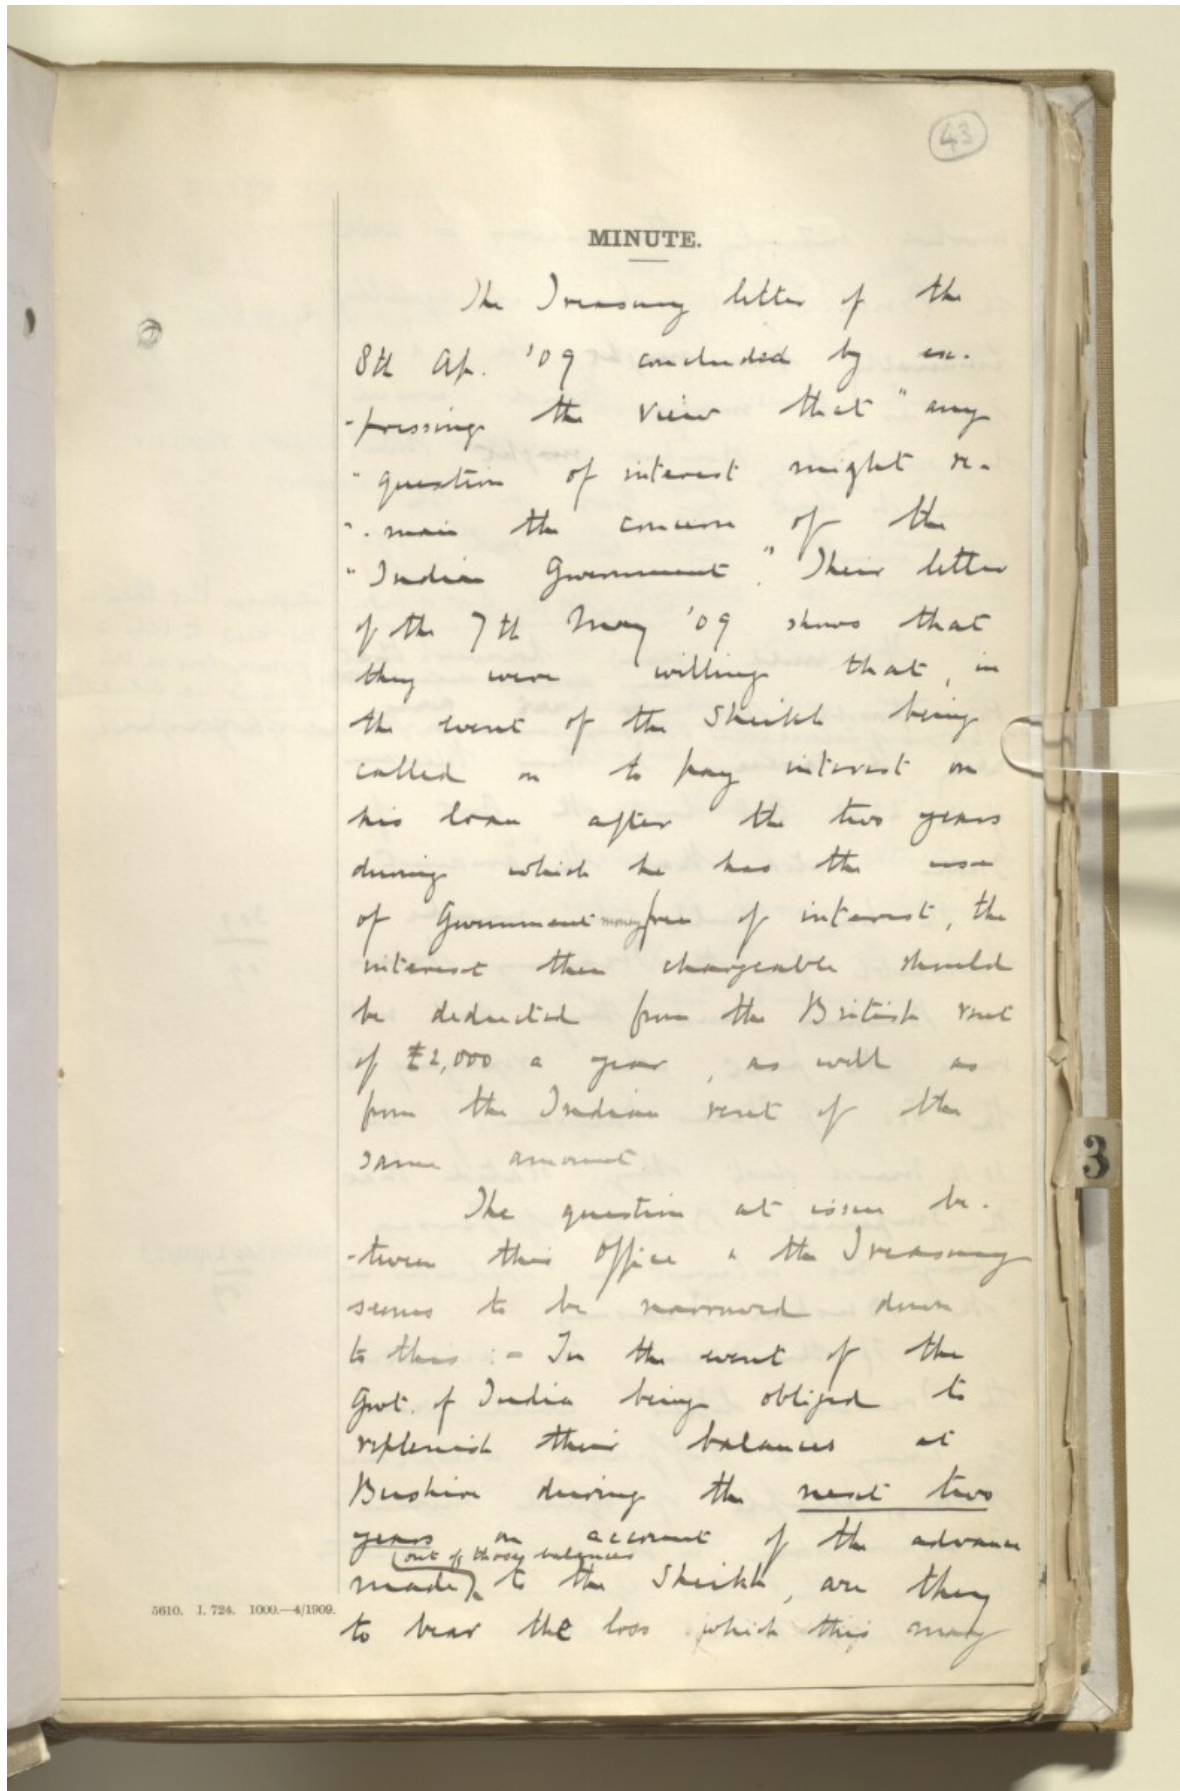 43
MINUTE.
The Treasury letter of the
8th Ap. '09 concluded by ex-
-pressing the view that "any
"question of interest might re-
"-main the concern of the
"Indian Government." Their letter
of the 7th May '09 shows that
they were willing that, in
the event of the Sheikh being
called on to pay interest on
his loan after the two years
during which he has the use
of Government money free of interest, the
interest then chargeable should
be deducted from the British rent
of £2,000 a year, as well as
from the Indian rent of the
same amount.
The question at issue be-
-tween this Office & the Treasury
seems to be narrowed down
to this :- In the event of the
Govt. of India being obliged to
replenish their balances at
Bushire during the next two
years on account of the advance
(out of those balances
made) to the Sheikh, are they
to bear the loss which this may
5610. I. 724. 1000.—4/1909.
3